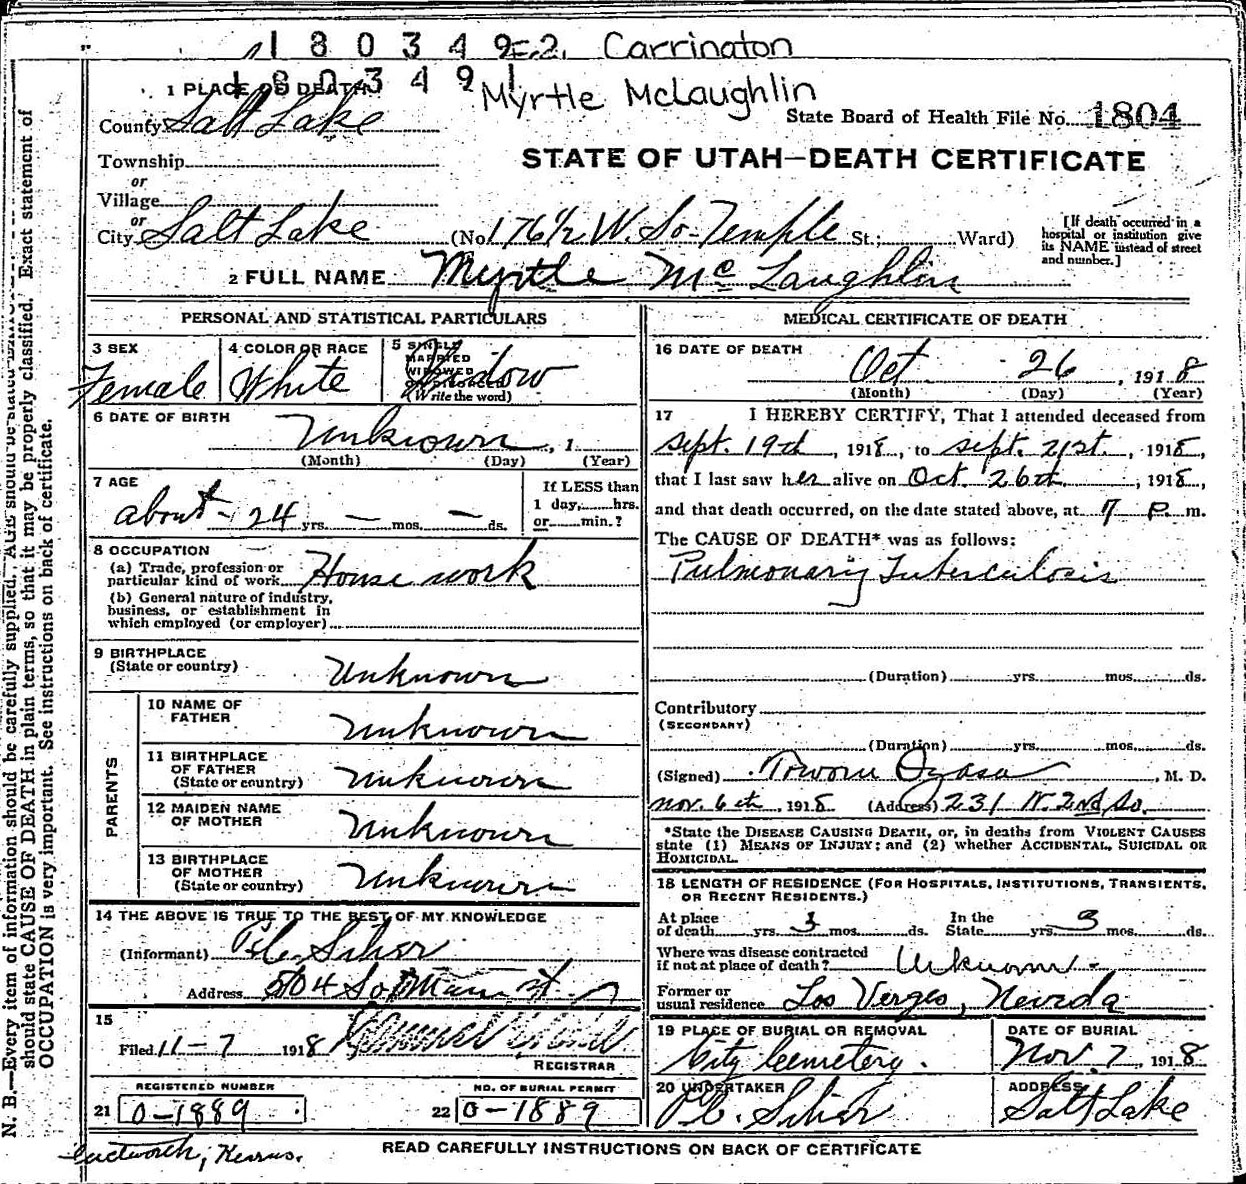 1 8 0 3 4 9 Carrington
1 8 0 3 4 9 1
Myrtle McLaughlin
1 PLACE OF DEATH
County Salt Lake
State Board of Health File No. 1804
Township
STATE OF UTAH—DEATH CERTIFICATE
or
Village
or
City Salt Lake (No. 176½ W. So. Temple St.; Ward)
[If death occurred in a
hospital or institution give
its NAME instead of street
and number.]
2 FULL NAME Myrtle Mc Laughlin
PERSONAL AND STATISTICAL PARTICULARS
3 SEX
Female
4 COLOR OR RACE
White
5 SINGLE
MARRIED
WIDOWED
OR DIVORCED
(Write the word)
Widow
6 DATE OF BIRTH
Unknown, 1
(Month) (Day) (Year)
7 AGE
about 24 yrs. — mos. — ds.
If LESS than
1 day, hrs.
or min.?
8 OCCUPATION
(a) Trade, profession or
particular kind of work House work
(b) General nature of industry,
business, or establishment in
which employed (or employer)
9 BIRTHPLACE
(State or country) Unknown
PARENTS
10 NAME OF
FATHER Unknown
11 BIRTHPLACE
OF FATHER
(State or country) Unknown
12 MAIDEN NAME
OF MOTHER Unknown
13 BIRTHPLACE
OF MOTHER
(State or country) Unknown
14 THE ABOVE IS TRUE TO THE BEST OF MY KNOWLEDGE
(Informant)
Address 504 So Main st
15
Filed 11-7 1918
REGISTRAR
REGISTERED NUMBER
21 0-1889
NO. OF BURIAL PERMIT
22 0-1889
MEDICAL CERTIFICATE OF DEATH
16 DATE OF DEATH
Oct 26, 1918
(Month) (Day) (Year)
17 I HEREBY CERTIFY, That I attended deceased from
Sept. 19th, 1918, to Sept. 21st, 1918,
that I last saw her alive on Oct. 26th, 1918,
and that death occurred, on the date stated above, at 7 P. m.
The CAUSE OF DEATH* was as follows:
Pulmonary Tuberculosis
(Duration) yrs. mos. ds.
Contributory
(SECONDARY)
(Duration) yrs. mos. ds.
(Signed) , M. D.
Nov. 6th, 1918 (Address) 231 W. 2nd So.
*State the DISEASE CAUSING DEATH, or, in deaths from VIOLENT CAUSES
state (1) MEANS OF INJURY; and (2) whether ACCIDENTAL, SUICIDAL OR
HOMICIDAL.
18 LENGTH OF RESIDENCE (FOR HOSPITALS, INSTITUTIONS, TRANSIENTS,
OR RECENT RESIDENTS.)
At place
of death yrs. 3 mos. ds.
In the
State yrs. 3 mos. ds.
Where was disease contracted
if not at place of death? Unknown
Former or
usual residence Los Verges, Nevada
19 PLACE OF BURIAL OR REMOVAL
City Cemetery.
DATE OF BURIAL
Nov. 7, 1918
20 UNDERTAKER
ADDRESS
Salt Lake
READ CAREFULLY INSTRUCTIONS ON BACK OF CERTIFICATE
N. B.—Every item of information should be carefully supplied. AGE should be stated EXACTLY.
should state CAUSE OF DEATH in plain terms, so that it may be properly classified. Exact statement of
OCCUPATION is very important. See instructions on back of certificate.